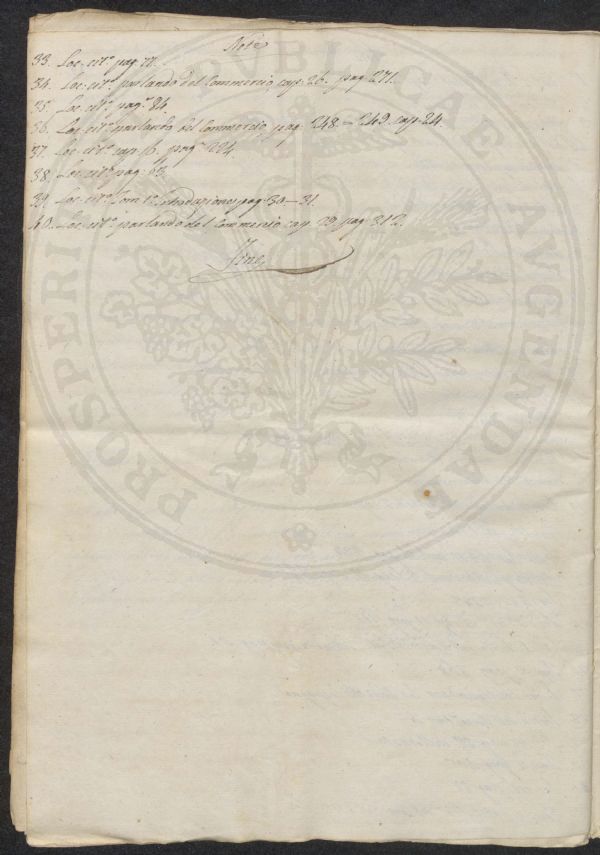 Note
33. Loc: cit.º pag:
34. Loc: cit.º parlando del Commercio cap: 26. pag: 271.
35. Loc. cit.º pag.ª 84.
36. Loc: cit.º parlando del Commercio pag: 248. = 249. cap: 24.
37. Loc: cit.º cap: 16. pag.ª 224.
38. Loc: cit.º pag: 63.
39. Loc: cit.º Tom: 1.º Introduzione pag: 30-31.
40. Loc: cit.º parlando del Commercio cap. 29. pag: 312.
Fine
PROSPERITATI PUBLICAE AVGENDAE